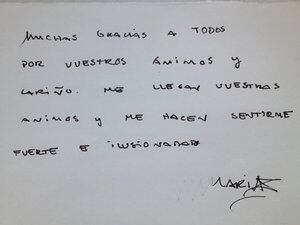 MUCHAS GRACIAS A TODOS
POR VUESTROS ANIMOS Y
CARIÑO. ME LLEGAN VUESTROS
ANIMOS Y ME HACEN SENTIRME
FUERTE E ILUSIONADA
MARIA